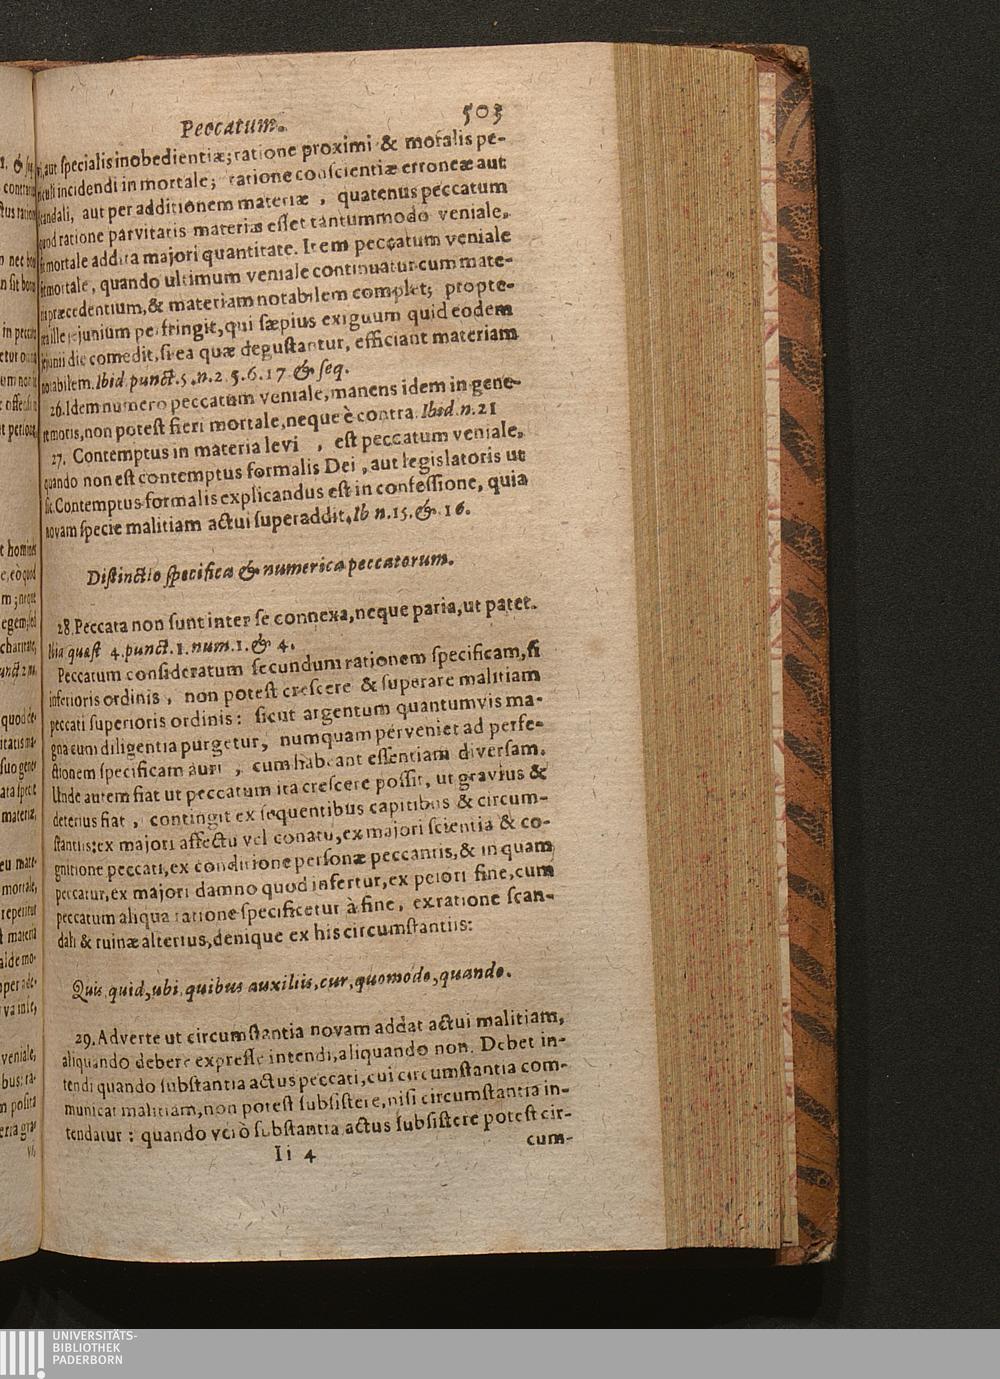 Peccatum. 503
aut specialis inobedientiæ; ratione proximi & moralis pe-
culi incidendi in mortale; ratione conscientiæ erroneæ aut
scandali, aut per additionem materiæ, quatenus peccatum
quod ratione parvitatis materiæ esset tantummodo veniale,
fit mortale addita majori quantitate. Item peccatum veniale
fit mortale, quando ultimum veniale continuatur cum mate-
præcedentium, & materiam notabilem complet; propte-
ille jejunium perfringit, qui sæpius exiguum quid eodem
jejunii die comedit, si ea quæ degustantur, efficiant materiam
notabilem. Ibid punct. 5. n. 2 5. 6. 17 & seq.
26. Idem numero peccatum veniale, manens idem in gene-
re moris, non potest fieri mortale, neque è contra. Ibid. n. 21
27. Contemptus in materia levi, est peccatum veniale,
quando non est contemptus formalis Dei, aut legislatoris ut
sic. Contemptus formalis explicandus est in confessione, quia
novam specie malitiam actui superaddit. Ib n. 15. & 16.
Distinctio specifica & numerica peccatorum.
28. Peccata non sunt inter se connexa, neque paria, ut patet.
quæst 4. punct. 1. num. 1. & 4.
Peccatum consideratum secundum rationem specificam, si
inferioris ordinis, non potest crescere & superare malitiam
peccati superioris ordinis: sicut argentum quantumvis ma-
gna cum diligentia purgetur, numquam perveniet ad perfe-
ctionem specificam auri, cum habeant essentiam diversam.
Unde autem fiat ut peccatum ita crescere possit, ut gravius &
deterius fiat, contingit ex sequentibus capitibus & circum-
stantiis: ex majori affectu vel conatu, ex majori scientia & co-
gnitione peccati, ex conditione personæ peccantis, & in quam
peccatur, ex majori damno quod infertur, ex peiori fine, cum
peccatum aliqua ratione specificetur à fine, ex ratione scan-
dali & ruinæ alterius, denique ex his circumstantiis:
Quis, quid, ubi, quibus auxiliis, cur, quomodo, quando.
29. Adverte ut circumstantia novam addat actui malitiam,
aliquando debere expresse intendi, aliquando non. Debet in-
tendi quando substantia actus peccati, cui circumstantia com-
municat malitiam, non potest subsistere, nisi circumstantia in-
tendatur: quando verò substantia actus subsistere potest cir-
Ii 4 cum-
UNIVERSITÄTS-
BIBLIOTHEK
PADERBORN